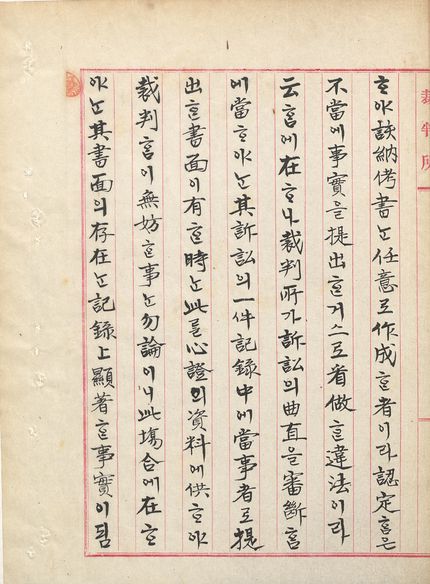 裁判所
ᄒᆞ야該納侤書ᄂᆞᆫ任意로作成ᄒᆞᆫ者이라認定ᄒᆞᆷ은
不當에事實을提出ᄒᆞᆫ거스로看做ᄒᆞᆫ違法이라
云ᄒᆞᆷ에在ᄒᆞ나裁判所가訴訟의曲直을審斷ᄒᆞᆷ
에當ᄒᆞ야ᄂᆞᆫ其訴訟의一件記錄中에當事者로提
出ᄒᆞᆫ書面이有ᄒᆞᆫ時ᄂᆞᆫ此로心證의資料에供ᄒᆞ야
裁判ᄒᆞᆷ이無妨ᄒᆞᆫ事ᄂᆞᆫ勿論이나此塲合에在ᄒᆞ
야ᄂᆞᆫ其書面의存在ᄂᆞᆫ記錄上顯著ᄒᆞᆫ事實이됨